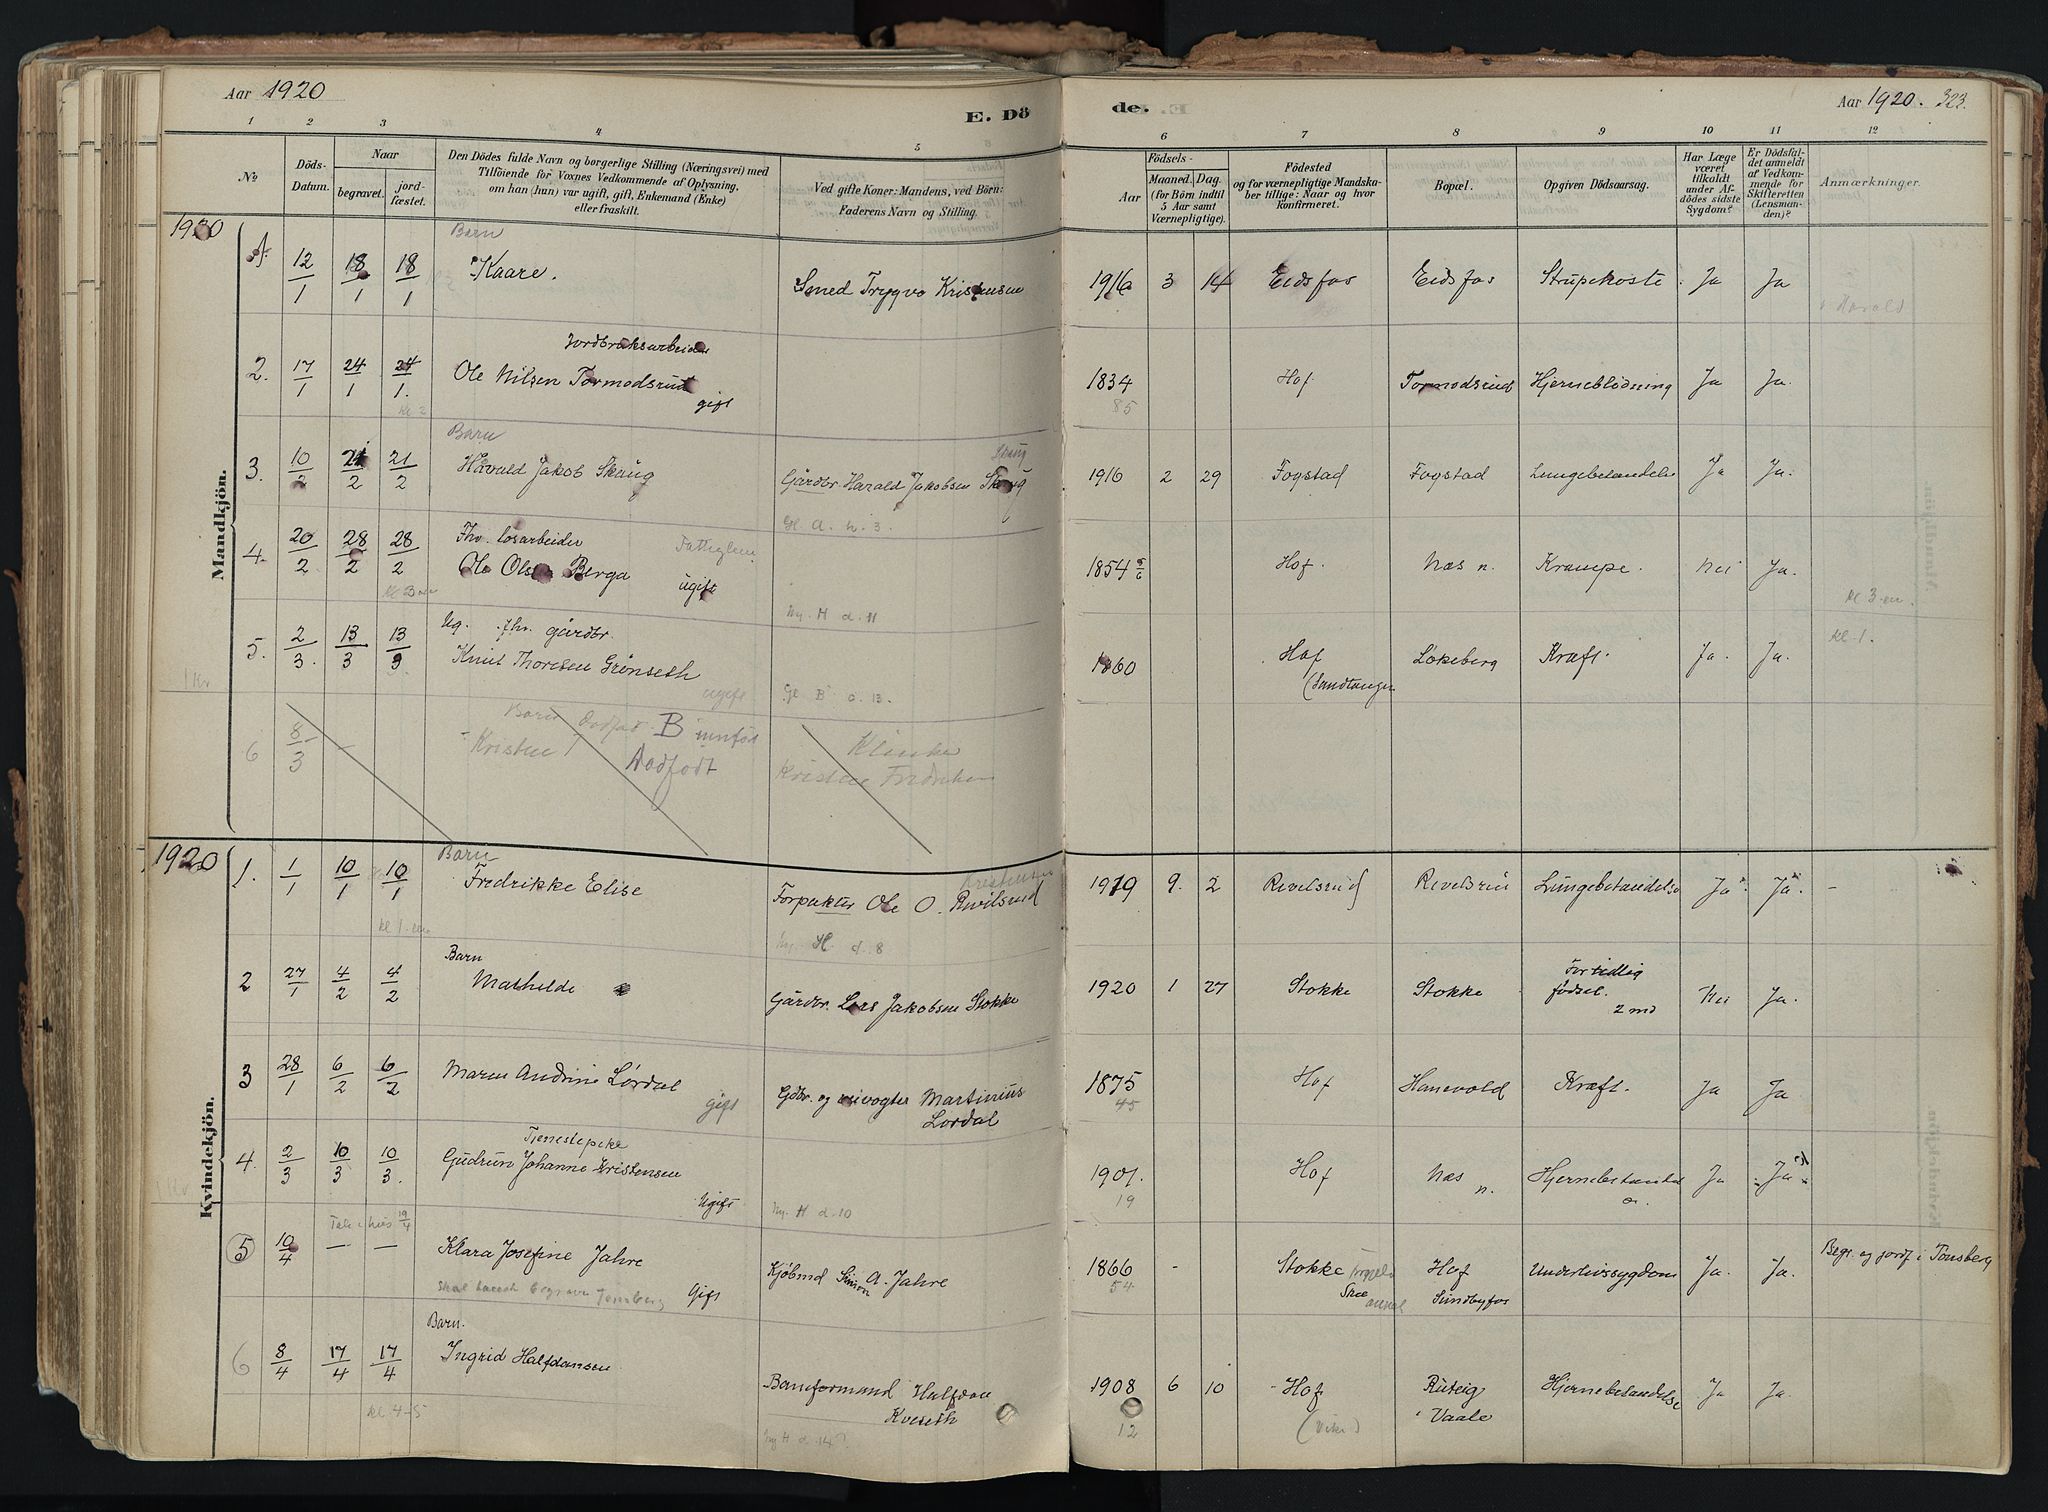 Aar 1920
E. Dö
de.
Aar 1920. 323.
1 2 3 4 5 6 7 8 9 10 11 12
No
Döds-Datum.
Naar
begravet.
jord-fæstet.
Den Dödes fulde Navn og borgerlige Stilling (Næringsvei) med
Tilföiende for Voxnes Vedkommende af Oplysning,
om han (hun) var ugift, gift, Enkemand (Enke)
eller fraskilt.
Ved gifte Koner: Mandens, ved Börn:
Faderens Navn og Stilling.
Födsels-
Aar
Maaned. Dag.
(for Börn indtil
5 Aar samt
Værnepligtige).
Födested
og for værnepligtige Mandska-
ber tillige: Naar og hvor
konfirmeret.
Bopæl.
Opgiven Dödsaarsag.
Har Læge
været
tilkaldt
under Af-
dödes sidste
Sygdom?
Er Dödsfal-
det anmeldt
af Vedkom-
mende for
Skifteretten
(Lensman-
den)?
Anmærkninger.
1920
Mandkjön.
Barn
1. 12/1 18/1 18/1 Kaare. Smed Trygve Kristensen 1916 3 14 Eidsfos Eidsfos Strupehoste. Ja Ja
Harald
Jordbruksarbeider
2. 17/1 24/1 24/1. Ole Nilsen Tormodsrud gift 1834 Hof Tormodsrud Hjerneblödning Ja Ja.
kl 2
85
Barn
Skaug
3. 10/2 21/2 21/2 Havald Jakob Skaug Gårdbr Harald Jakobsen Skaug 1916 2 29 Fogstad Fogstad Lungebetændelse Ja Ja.
Gl. A. h. 3.
Fhv. løsarbeider Fattiglem
4. 20/2 28/2 28/2 Ole Olsen Berga ugift 1854 5/6 Hof. Næs n. Krampe. Nei Ja.
Ny. H d. 11
kl 3-en.
Ug. fhv. gårdbr.
5. 2/3. 13/3 13/3. Knut Thoresen Grønseth 1860 Hof Løkeberg Kræft. Ja. Ja.
kl. 1.
1 Kr
ugift
Gl B o. 13.
(Sandtangen
6 8/3 — Barn Dødfød B innført
Kristine Dødfødt
Klinke
Kristian Fredriksen
1920
Kvindekjön.
Barn
Kristensen
1. 1/1 10/1 10/1 Fredrikke Elise Forpakter Ole O. Revilsrud 1919 9. 2 Revelsrud Revelsrud Lungebetændelse Ja. Ja. -
kl 1-en
Ny. H. d. 8
Barn
2 27/1 4/2 4/2 Mathilde Gårdbr. Lars Jakobsen Stokke 1920 1 27 Stokke Stokke For tidlig
födsel. 2 md Nei Ja.
3 28/1 6/2 6/2 Maren Andrine Lørdal Gift Gdbr. og veivogter Martinius
Lørdal 1875 Hof Hanevold Kræft. Ja Ja
45
Tjenestepike
4. 2/3 10/3 10/3. Gudrun Johanne Kristensen Ugift 1901. Hof Næs n. Hjernebetændelse Ja Ja
1 Kv
Ny. H d. 10
19
Tale i hus 19/4
5 10/4 — — Klara Josefine Jahre Gift Kjöbmd Simon A. Jahre 1866 - Stokke Hof
Sundbyfos Underlivssygdom Ja. Ja. Begr. og jordf i Tønsberg
54
Barn.
6 8/4 17/4 17/4 Ingrid Halfdansen Baneformand Halfdan
Kveseth 1908 6 10 Hof Ruteig
i Vaale Hjernebetændelse Ja Ja.
kl. 4-5
Ny H d. 14
12